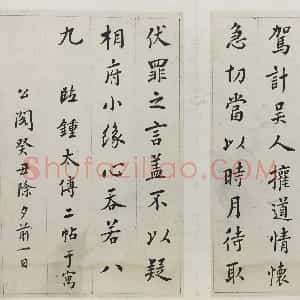 駕計吴人擁道情懷
急切當以時月待取
伏罪之言蓋不以疑
相府小緣心吞若八
九 臨鍾太傅二帖于寓
公閣癸丑除夕前一日
Shufaziliao.com